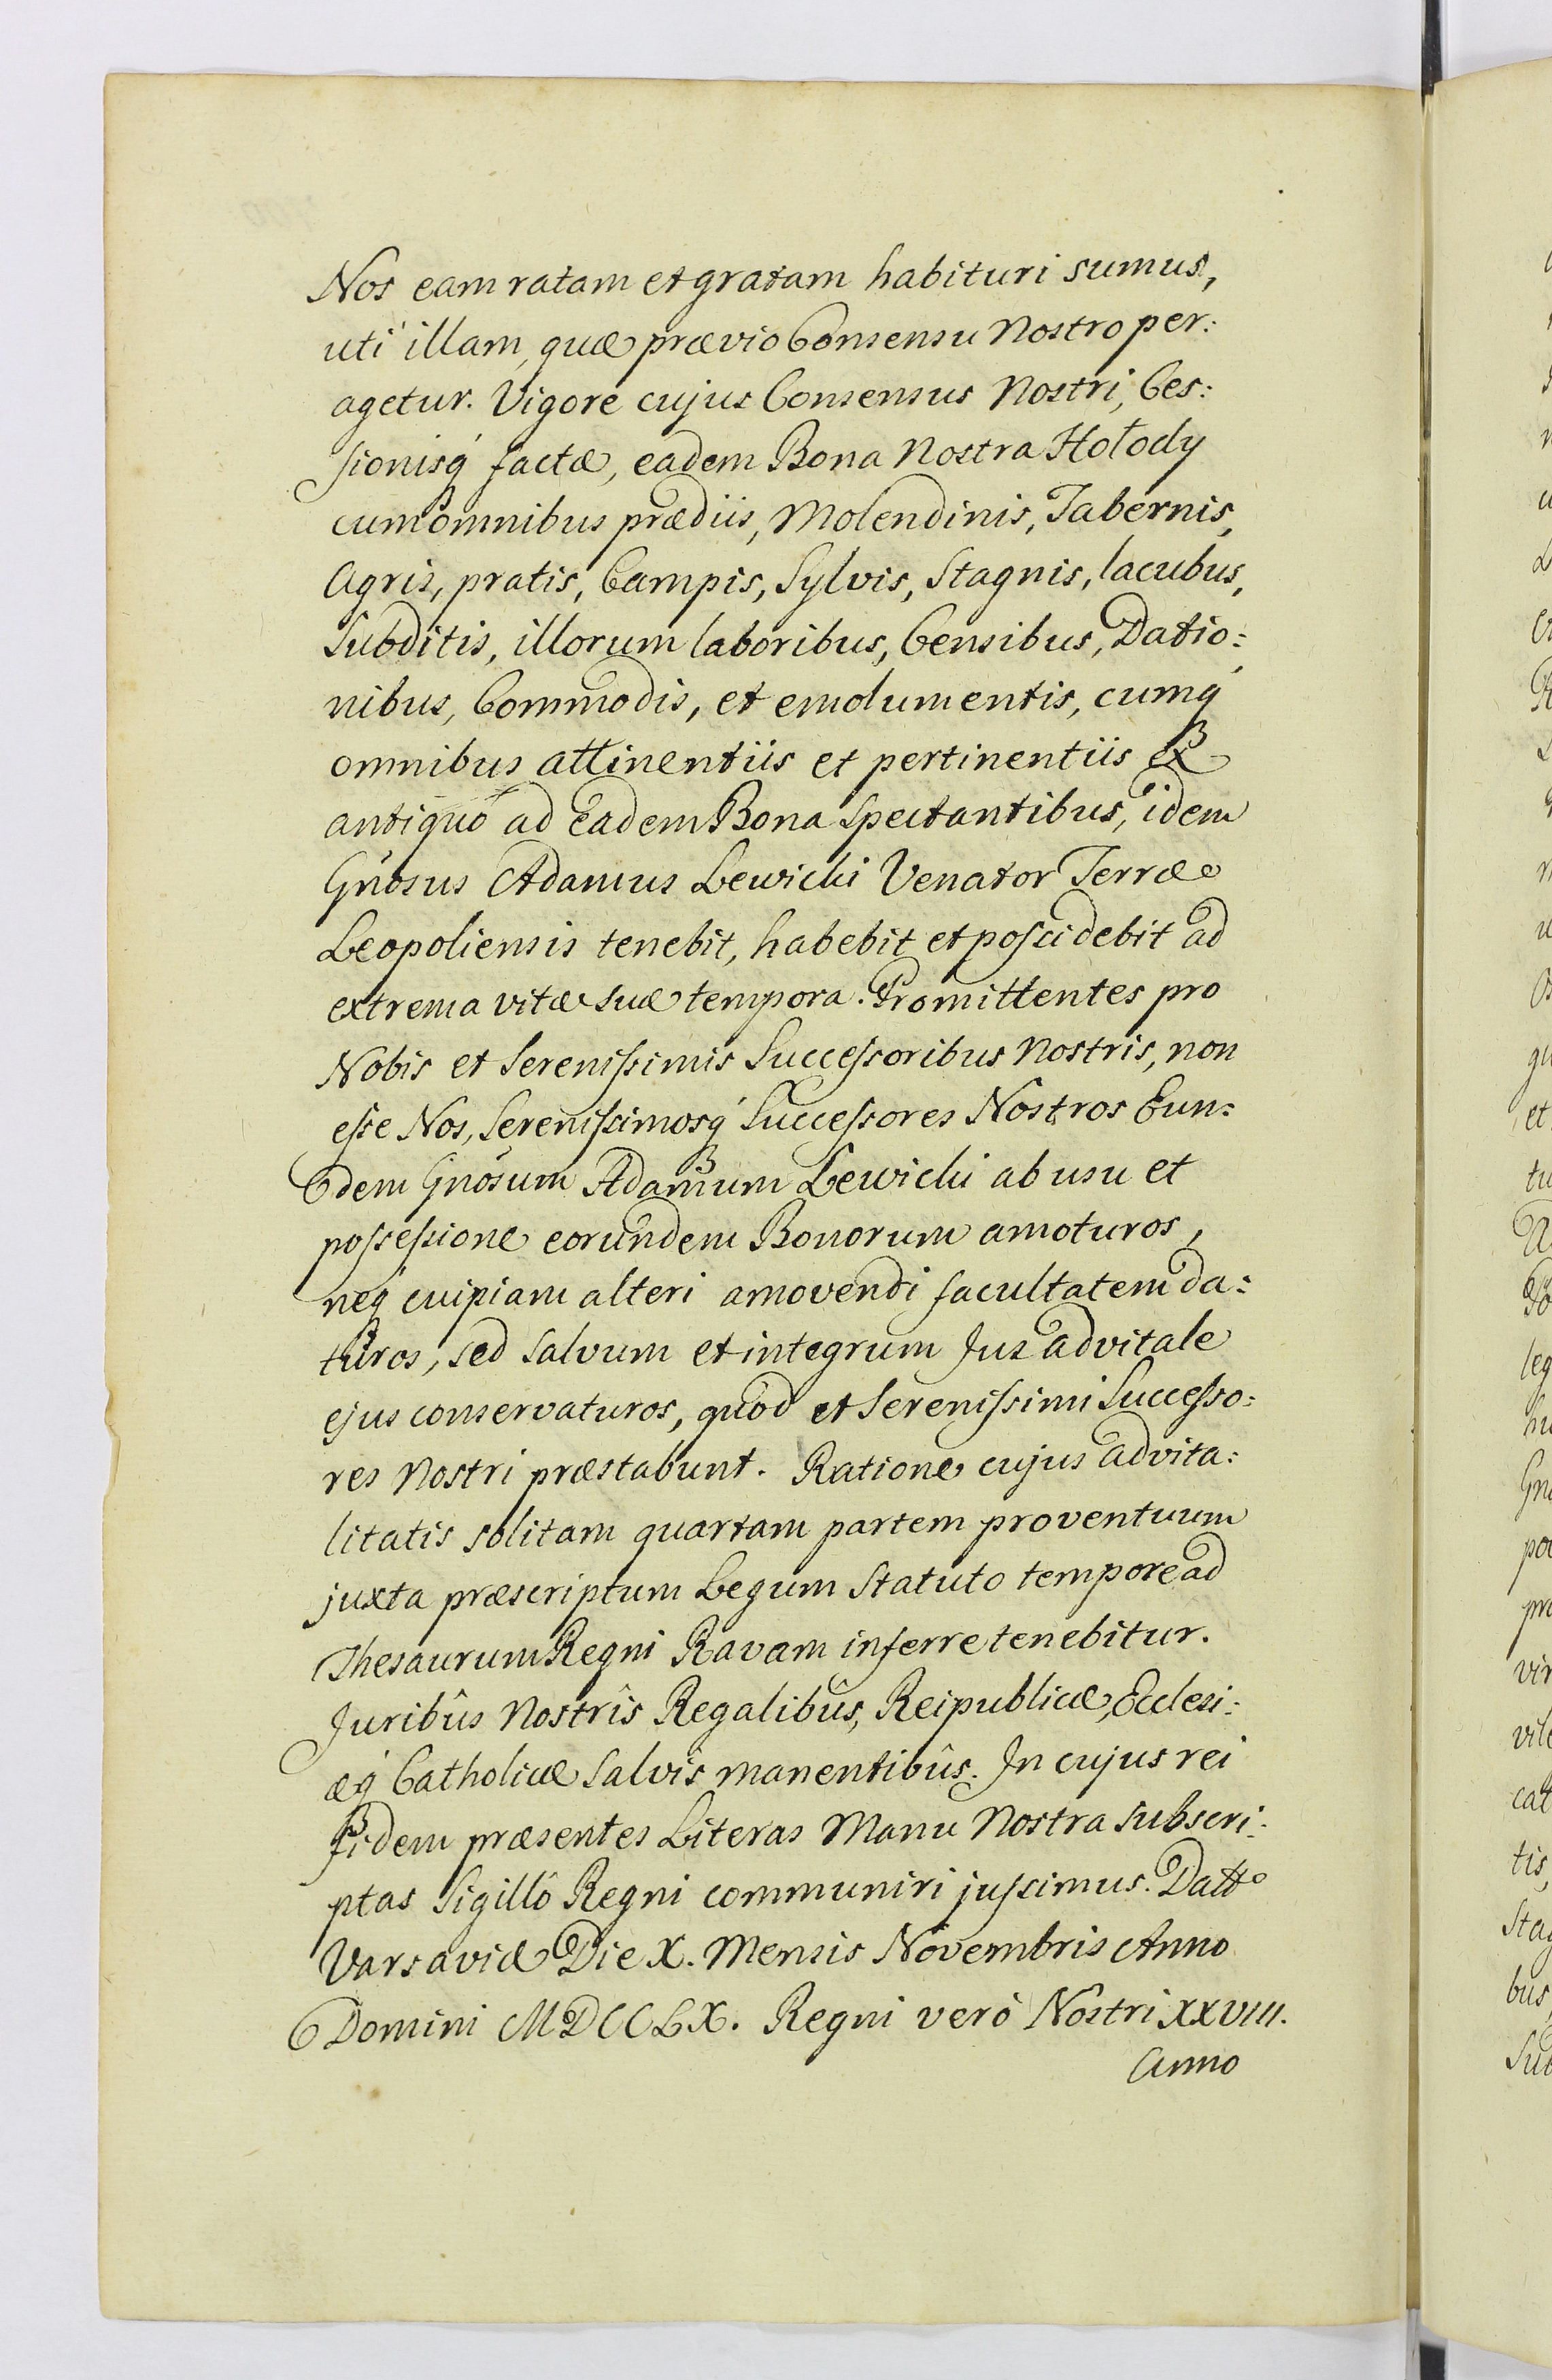 Nos eam ratam et gratam habituri sumus,
uti illam, quæ prævio Consensu Nostro per:
agetur. Vigore cujus Consensus Nostri, Ces:
sionisq́ factæ, eadem Bona Nostra Hołody
cum omnibus prædiis, Molendinis, Tabernis,
Agris, pratis, Campis, Sylvis, Stagnis, lacubus,
Subditis, illorum laboribus, Censibus, Datio:
nibus, Commodis, et emolumentis, cumq́
omnibus attinentiis et pertinentiis ex
antiquo ad Eadem Bona spectantibus, idem
Gnosus Adamus Lewicki Venator Terræ
Leopoliensis tenebit, habebit et possidebit ad
extrema vitæ suæ tempora. Promittentes pro
Nobis et Serenissimis Successoribus Nostris, non
esse Nos, Serenissimosq́ Successores Nostros Eun:
dem Gnosum Adamum Lewicki ab usu et
possessione eorundem Bonorum amoturos,
neq́ cuipiam alteri amovendi facultatem da:
turos, sed salvum et integrum Jus advitale
ejus conservaturos, quod et Serenissimi Successo:
res Nostri præstabunt. Ratione cujus advita:
litatis solitam quartam partem proventuum
juxta præscriptum Legum statuto tempore ad
Thesaurum Regni Ravam inferre tenebitur.
Juribûs Nostrîs Regalibûs, Reipublicæ, Ecclesi:
æq́ Catholicæ salvîs manentibûs. In cujus rei
fidem præsentes Literas Manu Nostra subscri:
ptas Sigillô Regni communiri jussimus. Datt
Varsaviæ Die X. Mensis Novembris Anno
Domini MDCCLX. Regni verò Nostri XXVIII.
Anno